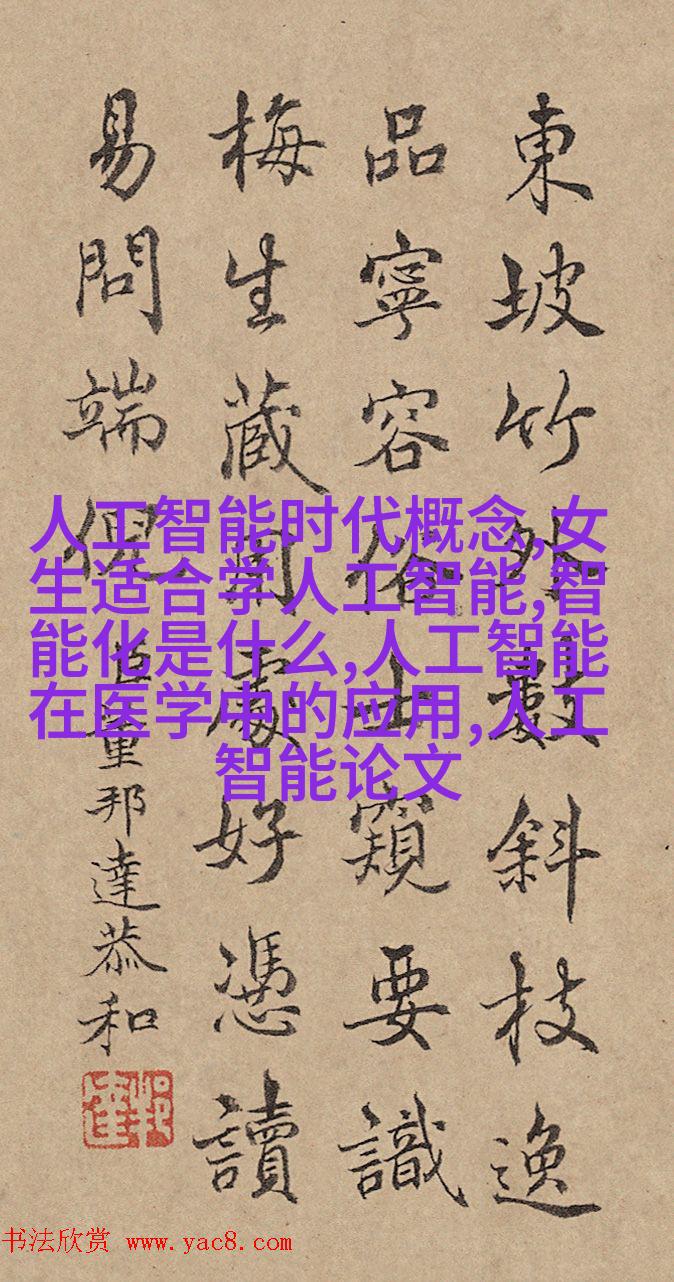 東坡竹外數斜枝逸
品寧容俗士窺要識
梅生藏處好憑讀
易問端倪 臣董邦達恭和
人工智能时代概念,女
生适合学人工智能,智
能化是什么,人工智能
在医学中的应用,人工
智能论文
书法欣赏 www.yac8.com